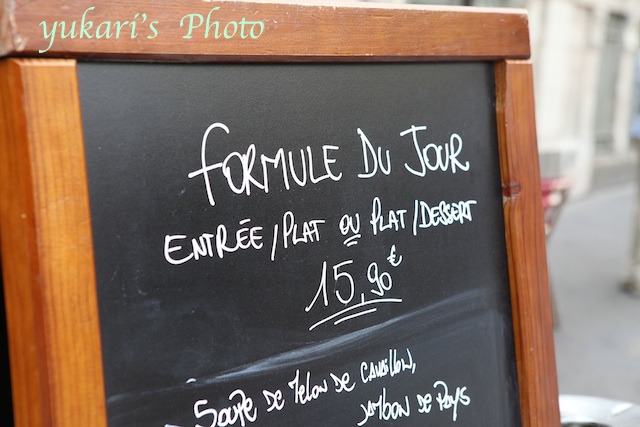 yukari's Photo
FORMULE DU JOUR
ENTRÉE/PLAT OU PLAT/DESSERT
15,90€
- SOUPE DE MELON DE CAVAILLON,
JAMBON DE PAYS